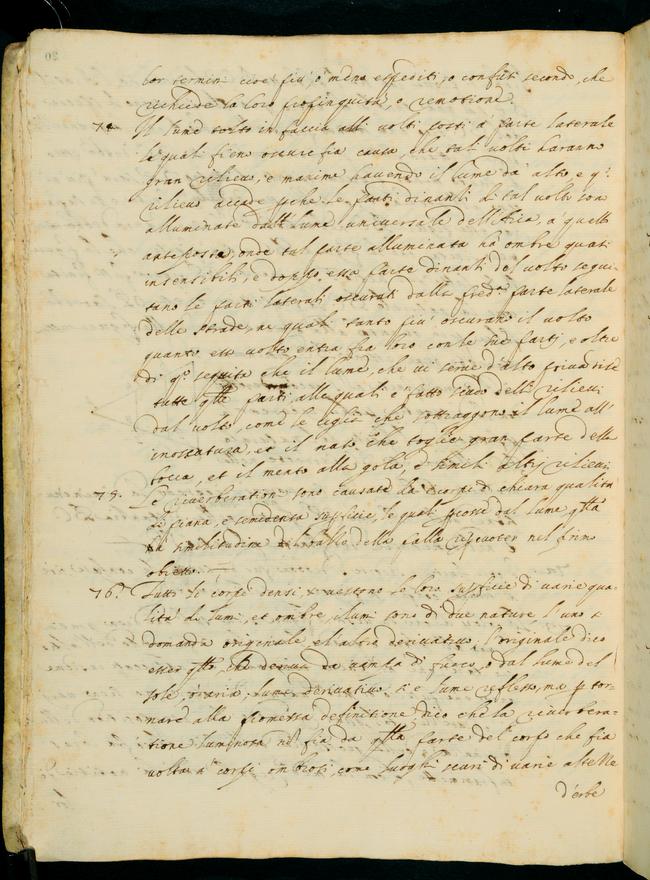 lor termini cioè più, o meno espediti, o confusi secondo, che
richiede la loro propinquità, o remotione.
74. Il lume tolto in faccia alli volti posti a parte laterale
le quali sieno oscure fia causa che tal volti haranno
gran rilievo, e maxime havendo il lume da alto e q.o
rilievo accade perche le parti dinanzi di tal volto son
alluminate dall lume universale dell'aria, a quello
anteposta, onde tal parte alluminata ha ombre quasi
insensibili, e doppo essa parte dinanzi del volto segui-
tano le parti laterali oscurati dalla pred.a parte laterale
delle strade, le quali tanto più oscurano il volto
quanto esso volto entra fra loro con le sue parti, e oltre
di q.o seguita che il lume, che vi serve d'alto priva
tutte q.lle parti, alle quali è fatto scudo delli rilievi
dal volto, come le ciglia che sottraggono il lume all'
incassatura, et il naso che toglie gran parte della
bocca, et il mento alla gola, e simili altri rilievi
75. Le riverberationi sono causate da corpi di chiara qualità
di piana, e semidensa superficie, le quali percosse dal lume q.llo
a similitudine del balzo della palla ripercuoter nel primo
obietto.
76. Tutti li corpi densi si vestono le loro superficie di varie qua-
lità di lumi, et ombre, i lumi sono di due nature l'uno si
domanda originale, e l'altro derivativo, l'originale dico
esser q.llo che deriva da vampa di fuoco, o dal lume del
sole, o aria: lume derivativo fi è lume reflesso, ma p tor-
nare alla promessa definitione dico che la riverbera-
tione luminosa nō fia da q.lla parte del corpo che fia
volta a corpi ombrosi come luoghi scuri di varie altezze
d'erbe